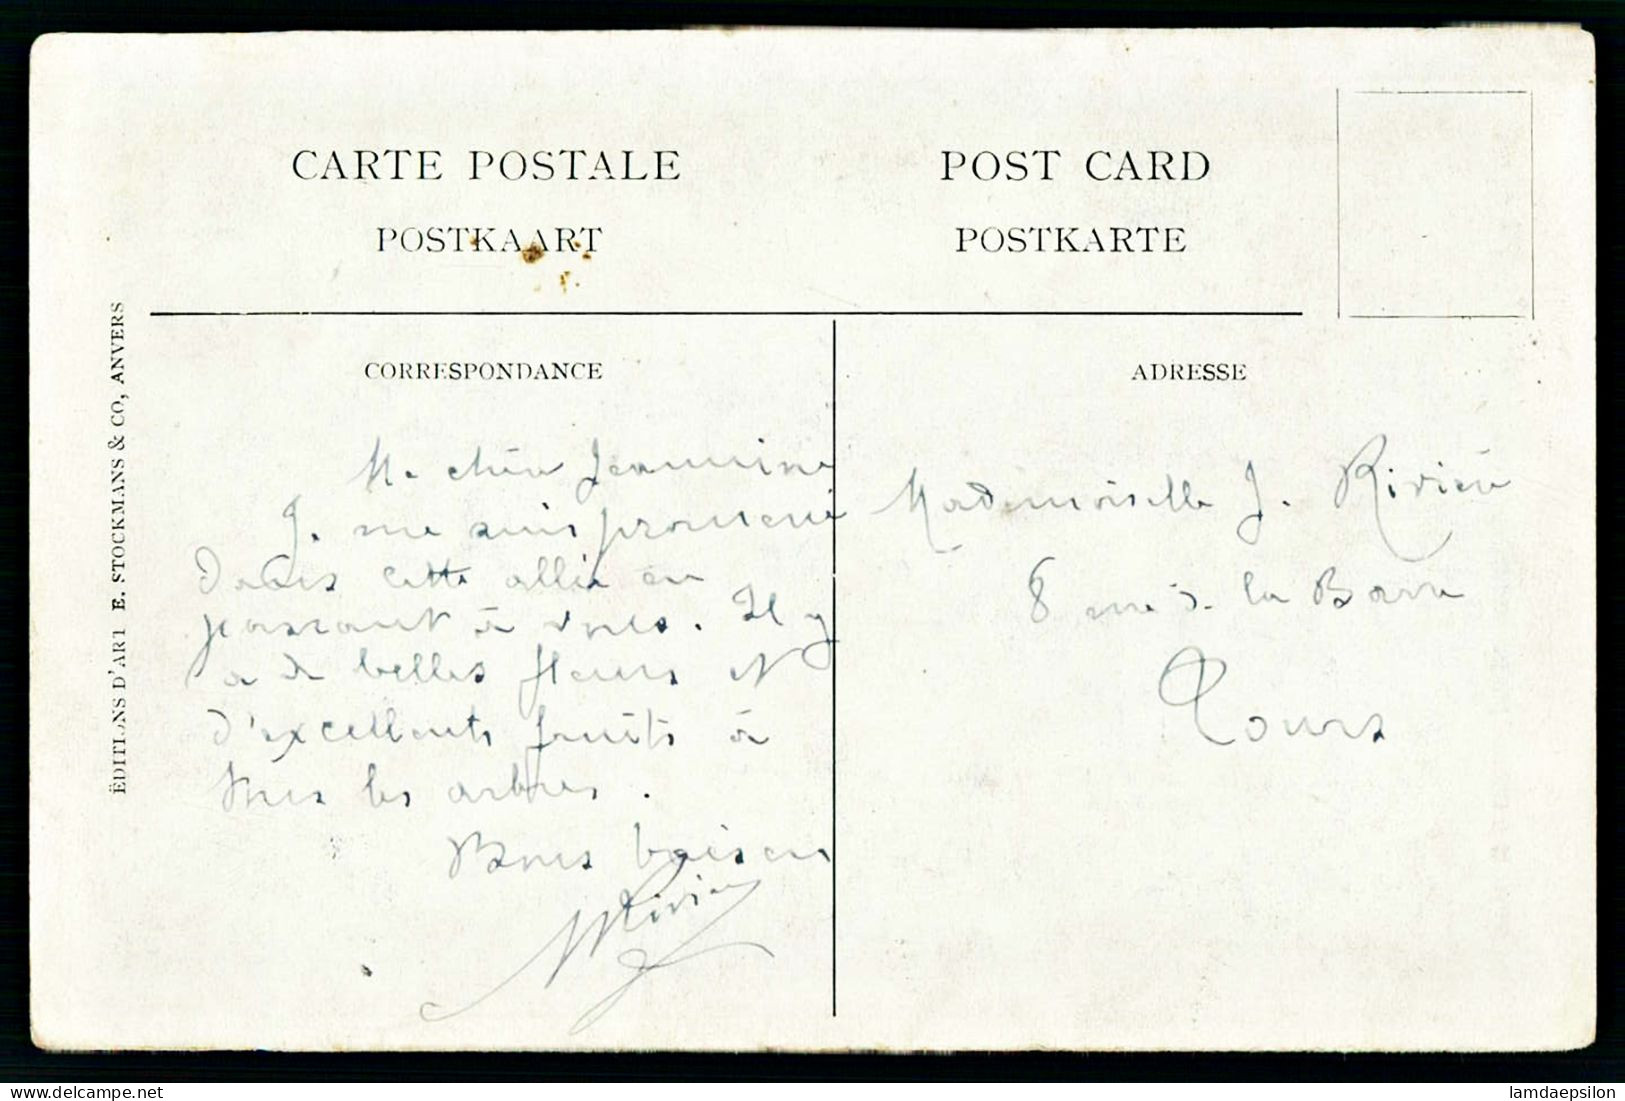 CARTE POSTALE
POSTKAART
POST CARD
POSTKARTE
ÉDITIONS D'ART E. STOCKMANS & CO, ANVERS
CORRESPONDANCE
Ma chère Jeannine
Je me suis promené
dans cette allée en
passant à vous. Il y
a de belles fleurs et
d'excellents fruits à
tous les arbres.
Bons baisers
Rivière
ADRESSE
Mademoiselle J. Rivière
8 rue de la Barre
Tours
delcampe.net
lamdaepsilon